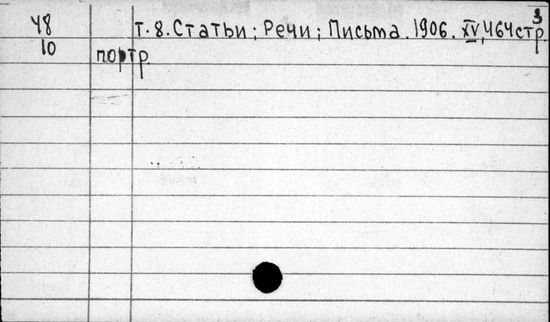 3
48 т. 8. Статьи; Речи; Письма. 1906. XV, 464 стр.
10 портр.